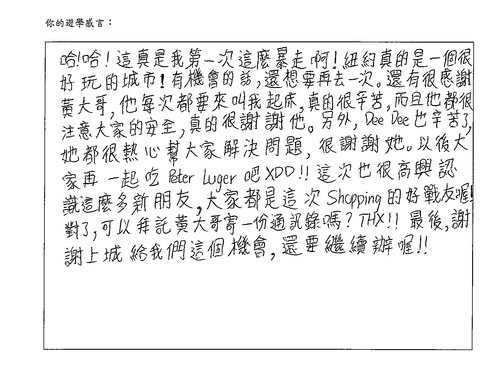 你的遊學感言：
哈!哈! 這真是我第一次這麼暴走啊! 紐約真的是一個很
好玩的城市! 有機會的話, 還想要再去一次。還有很感謝
黃大哥, 他每次都要來叫我起床, 真的很辛苦, 而且他都很
注意大家的安全, 真的很謝謝他。另外, Dee Dee 也辛苦了,
她都很熱心幫大家解決問題, 很謝謝她。以後大
家再一起吃 Peter Luger 吧 XDD!! 這次也很高興認
識這麼多新朋友, 大家都是這次 Shopping 的好戰友喔!
對了, 可以拜託黃大哥寄一份通訊錄嗎? THX!! 最後, 謝
謝上城給我們這個機會, 還要繼續辦喔!!